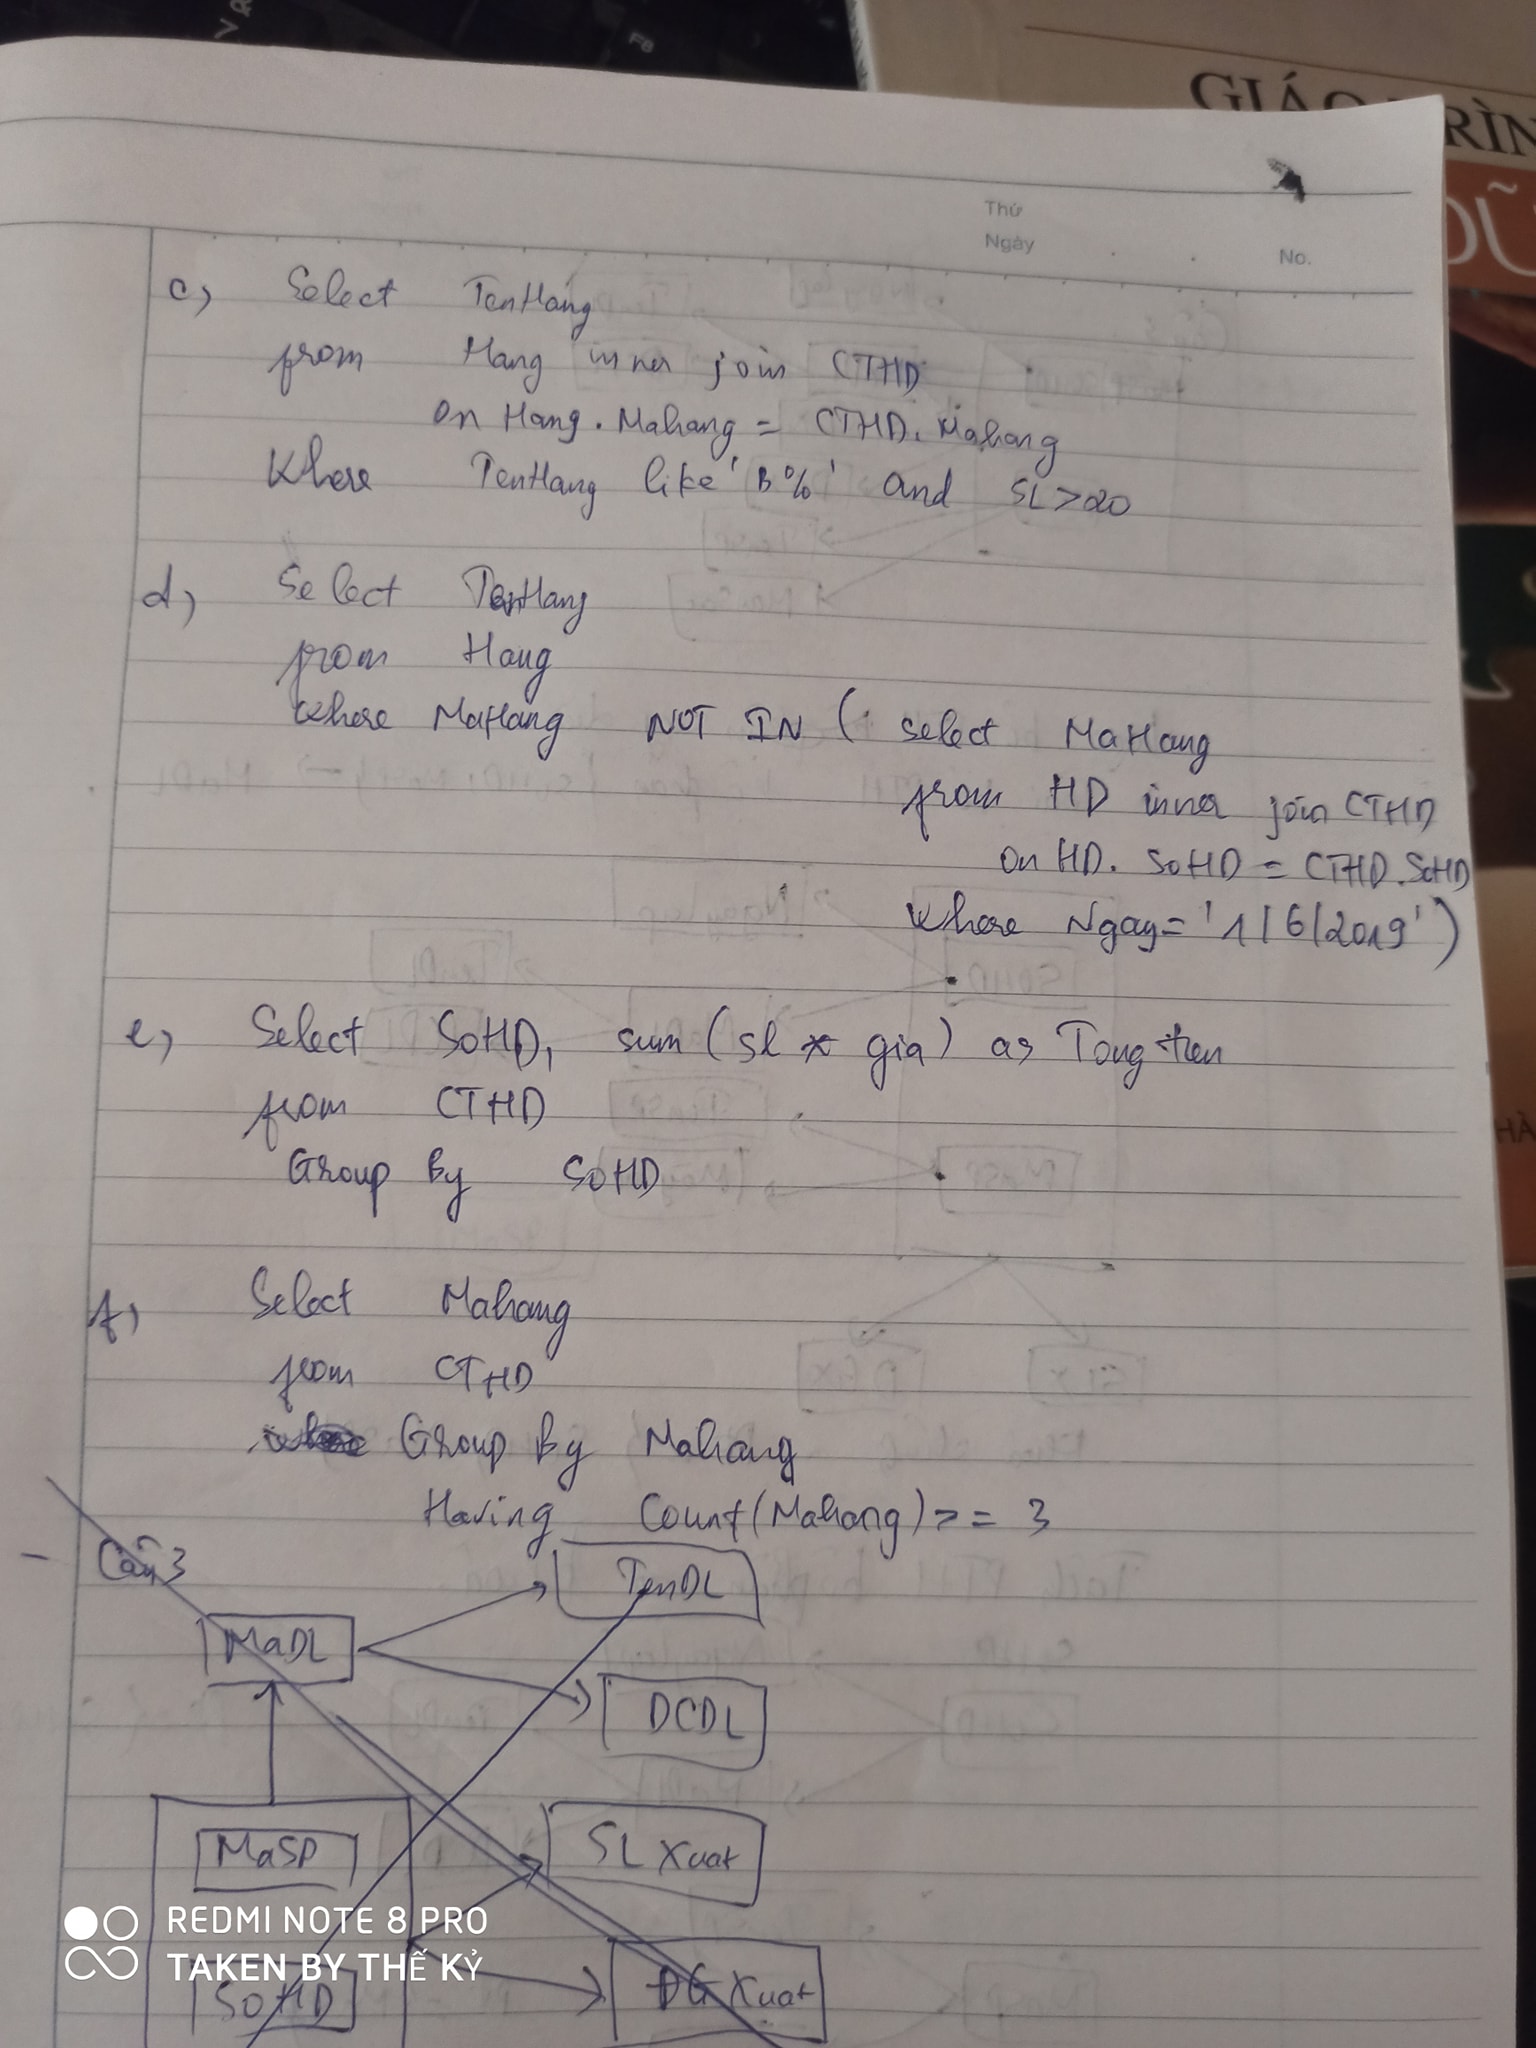 F8
GIÁO
RÌN
DŨ
HÀ
Thứ
Ngày
No.
c, Select TenHang
from Hang inner join CTHD
on Hang. Mahang = CTHD. Mahang
Where TenHang like 'B%' and SL>20
d, Select TenHang
from Hang
Where MaHang NOT IN ( select MaHang
from HD inner join CTHD
on HD. SoHD = CTHD.SoHD
Where Ngay= '1/6/2019')
e, Select SoHD, sum (sl * gia) as Tong tien
from CTHD
Group By SoHD
f, Select Mahang
from CTHD
Group By Mahang
Having Count(Mahang) >= 3
Câu 3
TenDL
MaDL
DCDL
MaSP
SL Xuat
SoHD
ĐG Xuat
REDMI NOTE 8 PRO
TAKEN BY THẾ KỶ